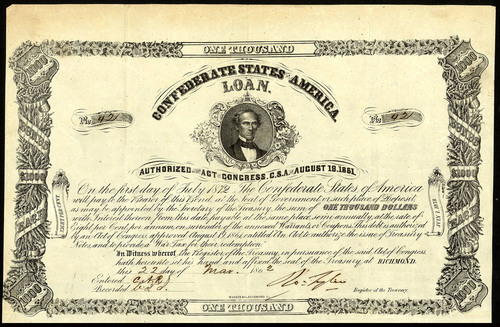 ONE THOUSAND
CONFEDERATE STATES OF AMERICA.
LOAN.
No. 921
No. 921
AUTHORIZED BY ACT OF CONGRESS, C.S.A. OF AUGUST 19, 1861.
On the first day of July 1872 The Confederate States of America
will pay to the Bearer of this Bond, at the seat of Government or such place of Deposit
as may be appointed by the Secretary of the Treasury, the sum of ONE THOUSAND DOLLARS
with Interest thereon from this date, payable at the same place, semi annually, at the rate of
Eight per Cent per annum, on surrender of the annexed Warrants or Coupons. This debt is authorized
by an Act of Congress approved August 19, 1861, entitled An Act to authorize the issue of Treasury
Notes, and to provide a War Tax for their redemption.
In Witness whereof, the Register of the Treasury, in pursuance of the said Act of Congress
hath hereunto set his hand, and affixed the seal of the Treasury, at RICHMOND,
this 22 day of Mar. 1862
Entered
Recorded
Ro. Tyler
Register of the Treasury.
ONE THOUSAND
1000
1000
$1000
$1000
1000
1000